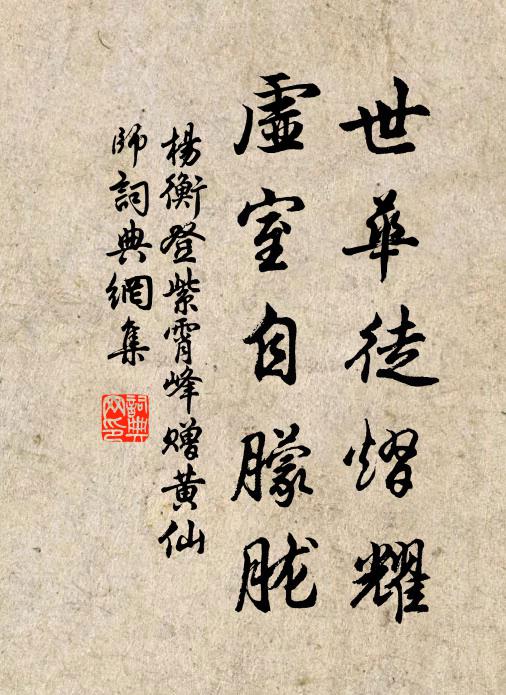 世華徒熠耀
虛室自朦朧
楊衡登紫霄峰贈黃仙
師詞典網集
詞典網印